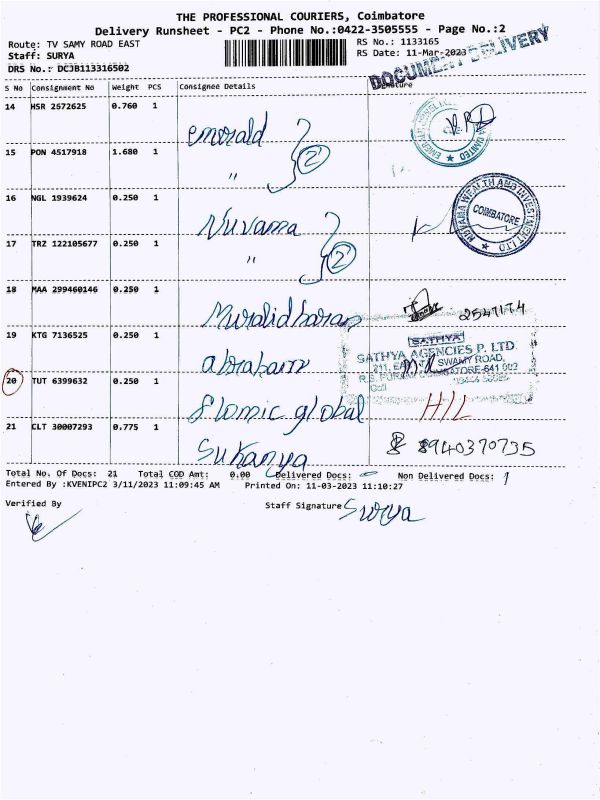 THE PROFESSIONAL COURIERS, Coimbatore
Delivery Runsheet - PC2 - Phone No.:0422-3505555 - Page No.:2
Route: TV SAMY ROAD EAST
Staff: SURYA
DRS No.: DCJB113316502
RS No.: 1133165
RS Date: 11-Mar-2023
DOCUMENT DELIVERY
S No Consignment No Weight PCS Consignee Details Signature
14 HSR 2572625 0.760 1
emerald
15 PON 4517918 1.680 1
" 2
16 NGL 1939624 0.250 1
Nuvama
NUVAMA WEALTH AND INVESTMENT LTD
COIMBATORE
17 TRZ 122105677 0.250 1
" 2
18 MAA 299460146 0.250 1
Muralidharan
19 KTG 7136525 0.250 1
SATHYA
SATHYA AGENCIES P. LTD.
SWAMY ROAD,
COIMBATORE-641 002
20 TUT 6399632 0.250 1
Flomic global H/L
21 CLT 30007293 0.775 1
Sukanya 8940370735
Total No. Of Docs: 21 Total COD Amt: 0.00 Delivered Docs: Non Delivered Docs: 1
Entered By :KVENIPC2 3/11/2023 11:09:45 AM Printed On: 11-03-2023 11:10:27
Verified By
Staff Signature Surya